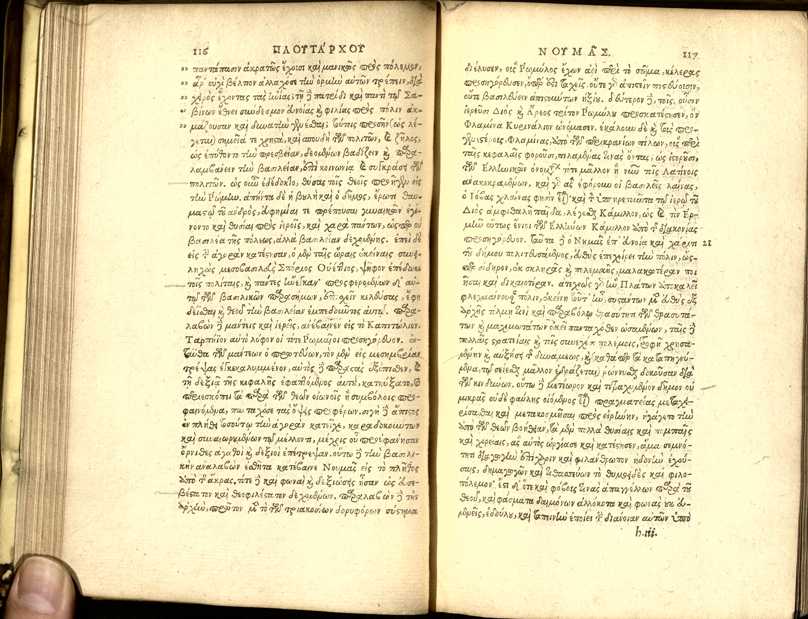 116 ΠΛΟΥΤΑΡΧΟΥ
πανταπασιν ἀκρατῶς ἔχουσι καὶ μανικῶς πρὸς πόλεμον,
ἆρ' οὐχὶ βέλτιον ἀλλαχόσε τὴν ὁρμὴν αὐτῶν τρέπειν, διὰ
χερὸς ἔχοντας τὰς ἡνίας, τῇ δὲ πατρίδι καὶ παντὶ τῷ Σα
βίνων ἔθνει σύνδεσμον εὐνοίας καὶ φιλίας πρὸς πόλιν ἀκ
μάζουσαν καὶ δυνατὴν γενέσθαι;
γεται, σημεῖα τε χρηστὰ, καὶ σπουδὴ τῶν πολιτῶν, καὶ ζῆλος,
ὡς ἐπύθοντο τὴν πρεσβείαν, δεομένων βαδίζειν καὶ παρα
λαμβάνειν τὴν βασιλείαν, ἐπὶ κοινωνίᾳ καὶ συγκράσει τῶν
πολιτῶν. ὡς οὖν ἐδέδοκτο, θύσας τοῖς θεοῖς προῆγεν εἰς
τὴν Ῥώμην. ἀπήντα δὲ ἡ βουλὴ καὶ ὁ δῆμος, ἔρωτι θαυ
μαστῷ τοῦ ἀνδρὸς, εὐφημίαι τε πρέπουσαι γυναικῶν ἐγί
νοντο καὶ θυσίαι πρὸς ἱεροῖς, καὶ χαρὰ πάντων, ὥσπερ οὐ
βασιλέα τῆς πόλεως, ἀλλὰ βασιλείαν δεχομένης. ἐπεὶ δὲ
εἰς τὴν ἀγορὰν κατέστησαν, ὁ μὲν ταῖς ὥραις ἐκείναις
μεσοβασιλεὺς Σπόριος Οὐέττιος, ψῆφον ἐπέδωκε
τοῖς πολίταις, καὶ πάντες ἤνεγκαν. προσφερομένων δὲ αὐ
τῷ τῶν βασιλικῶν παρασήμων, ἐπισχεῖν κελεύσας, ἔφη
δεῖσθαι καὶ θεοῦ τὴν βασιλείαν ἐμπεδοῦντος αὐτῷ. παρα
λαβὼν δὲ μάντεις καὶ ἱερεῖς, ἀνέβαινεν εἰς τὸ Καπιτώλιον.
Ταρπήιον αὐτὸ λόφον οἱ τότε Ῥωμαῖοι προσηγόρευον. ἐν
ταῦθα τῶν μάντεων ὁ πρωτεύων, τὸν μὲν εἰς μεσημβρίαν
τρέψας ἐγκεκαλυμμένον, αὐτὸς δὲ παραστὰς ἐξόπισθεν, καὶ
τῇ δεξιᾷ τῆς κεφαλῆς ἐφαπτόμενος αὐτοῦ, κατηύξατο, καὶ
περιεσκόπει τὰ παρὰ τῶν θεῶν οἰωνοῖς ἢ συμβόλοις προ
φαινόμενα, πανταχόσε τὰς ὄψεις περιφέρων. σιγὴ δὲ ἄπιστος
ἐν πλήθει τοσούτῳ τὴν ἀγορὰν κατεῖχε, καραδοκούντων
καὶ συναιωρουμένων τῷ μέλλοντι, μέχρις οὗ προεφάνησαν
ὄρνιθες ἀγαθοὶ καὶ δεξιοὶ ἐπέτρεψαν. οὕτω δὲ τὴν βασιλι
κὴν ἀναλαβὼν ἐσθῆτα κατέβαινε Νουμᾶς εἰς τὸ πλῆθος
ἀπὸ τῆς ἄκρας, τότε δὲ καὶ φωναὶ καὶ δεξιώσεις ἦσαν ὡς εὐσε
βέστατον καὶ θεοφιλέστατον δεχομένων. παραλαβὼν δὲ τὴν
ἀρχὴν, πρῶτον μὲν τὸ τῶν τριακοσίων δορυφόρων σύστημα
ΝΟΥΜΑΣ. 117
διέλυσεν, οὓς Ῥωμύλος ἔχων ἀεὶ περὶ τὸ σῶμα, κέλερας
προσηγόρευσεν, ὅπερ ἐστὶ ταχεῖς. οὔτε γὰρ ἀπιστεῖν πιστεύουσιν,
οὔτε βασιλεύειν ἀπιστούντων ἠξίου. δεύτερον δὲ, τοῖς οὖσιν
ἱερεῦσι Διὸς καὶ Ἄρεος τρίτον Ῥωμύλου προσκατέστησεν, ὃν
Φλάμινα Κυρινάλιον ὠνόμασεν. ἐκάλουν δὲ καὶ τοὺς προ
γενεστέρους, Φλαμίνας, ἀπὸ τῶν περικρανίων πίλων, οὓς περὶ
ταῖς κεφαλαῖς φοροῦσι, πιλαμένας τινὰς ὄντας, ὡς ἱστοροῦσι,
τῶν Ἑλληνικῶν ὀνομάτων τότε μᾶλλον ἢ νῦν τοῖς Λατίνοις
ἀνακεκραμένων. καὶ γὰρ ἃς ἐφόρουν οἱ βασιλεῖς λαίνας,
ὁ Ἰόβας χλαίνας φησὶν εἶναι καὶ τὸν ὑπηρετοῦντα τῷ ἱερεῖ τοῦ
Διὸς ἀμφιθαλῆ παῖδα, λέγεσθαι Κάμιλλον, ὡς καὶ τὸν Ἑρ
μῆν οὕτως ἔνιοι τῶν Ἑλλήνων Κάμιλλον ἀπὸ τῆς διακονίας
προσηγόρευον. ταῦτα δὲ ὁ Νουμᾶς ἐπ' εὐνοίᾳ καὶ χάριτι
τοῦ δήμου πολιτευσάμενος, εὐθὺς ἐπεχείρει τὴν πόλιν, ὥσ
περ σίδηρον, ἐκ σκληρᾶς καὶ πολεμικῆς, μαλακωτέραν ποι
ῆσαι καὶ δικαιοτέραν. ἀτεχνῶς γὰρ ἣν Πλάτων ἀποκαλεῖ
φλεγμαίνουσαν πόλιν, ἐκείνη τότ' ἦν, συστᾶσα μὲν εὐθὺς ἐξ
ἀρχῆς τόλμῃ τινὶ καὶ παραβόλῳ θρασύτητι τῶν θρασυτά
των καὶ μαχιμωτάτων ἐκεῖ πανταχόθεν ὠσαμένων, ταῖς δὲ
πολλαῖς στρατείαις καὶ τοῖς συνεχέσι πολέμοις, τροφῇ χρησα
μένη καὶ αὐξήσει τῆς δυνάμεως, καὶ καθάπερ τὰ καταπηγνύ
μενα, τῷ σείεσθαι μᾶλλον ἑδράζεται, ῥώννυσθαι δοκοῦσαν διὰ
τῶν κινδύνων. οὕτω δὴ μετέωρον καὶ τετραχυμένον δῆμον οὐ
μικρᾶς οὐδὲ φαύλης οἰόμενος εἶναι πραγματείας μεταχει
ρίσασθαι καὶ μετακοσμῆσαι πρὸς εἰρήνην, ἐπηγάγετο τὴν
ἀπὸ τῶν θεῶν βοήθειαν, τὰ μὲν πολλὰ θυσίαις καὶ πομπαῖς
καὶ χορείαις, ἃς αὐτὸς ὠργίασε καὶ κατέστησεν, ἅμα σεμνό
τητι διαγωγὴν ἐπίχαριν καὶ φιλάνθρωπον ἡδονὴν ἐχού
σαις, δημαγωγῶν καὶ τιθασεύων τὸ θυμοειδὲς καὶ φιλο
πόλεμον· ἔστι δ' ὅτε καὶ φόβους τινὰς ἀπαγγέλλων παρὰ τοῦ
θεοῦ, καὶ φάσματα δαιμόνων ἀλλόκοτα καὶ φωνὰς οὐκ εὐ
μενεῖς, ἐδούλου, καὶ ταπεινὴν ἐποίει τὴν διάνοιαν αὐτῶν ὑπὸ
h.iii.